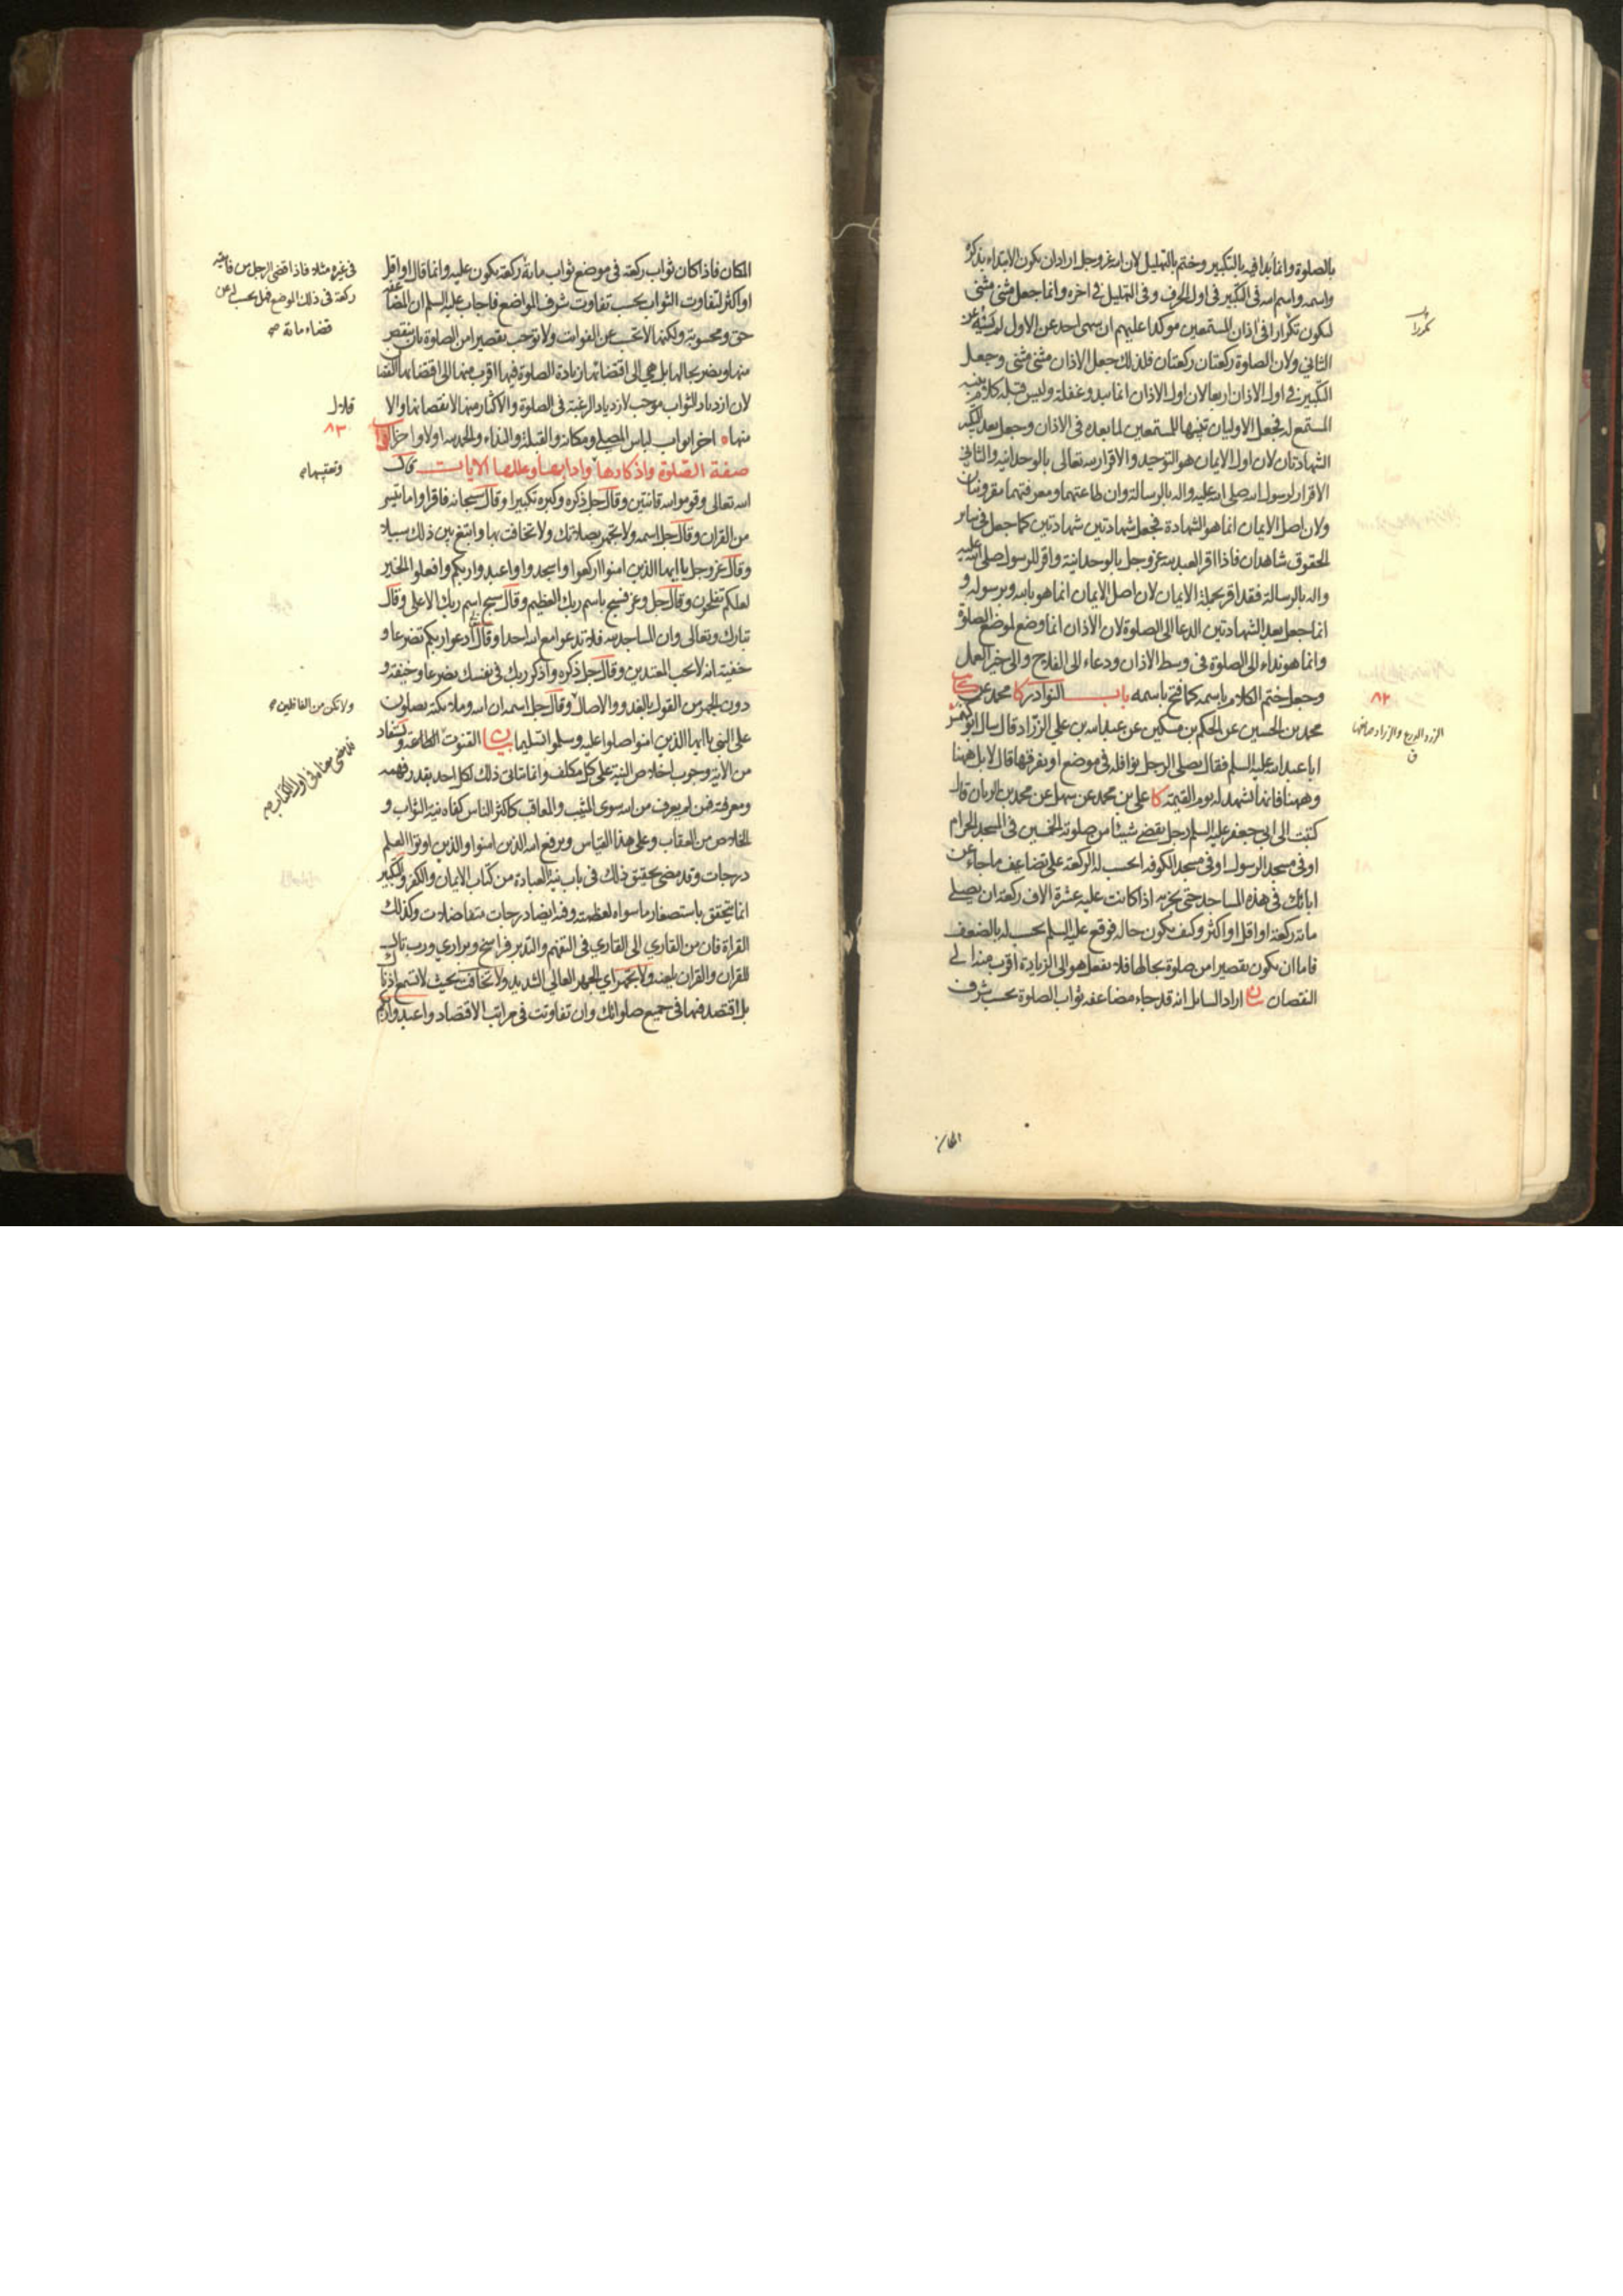 بالصلوة وانما بدا فيه بالتكبير وختم بالتهليل لان الله عز وجل اراد ان يكون الابتداء بذكره
واسمه واسم الله في التكبير في اول الحرف وفي التهليل في اخره وانما جعل مثنى مثنى
ليكون تكرارا في اذان المستمعين موكدا عليهم ان سهى احد عن الاول لم يسه عن
الثاني ولان الصلوة ركعتان ركعتان فلذلك جعل الاذان مثنى مثنى وجعل
التكبير في اول الاذان اربعا لان اول الاذان انما يبدو غفلة وليس قبله كلام ينبه
المستمع له فجعل الاوليان تنبيها للمستمعين لما بعده في الاذان وجعل بعد التكبير
الشهادتان لان اول الايمان هو التوحيد والاقرار لله تعالى بالوحدانية والثاني
الاقرار لرسول الله صلى الله عليه واله بالرسالة وان طاعتهما ومعرفتهما مقرونتان
ولان اصل الايمان انما هو الشهادة فجعل شهادتين شهادتين كما جعل في ساير
الحقوق شاهدان فاذا اقر العبد لله عز وجل بالوحدانية واقر للرسول صلى الله عليه
واله بالرسالة فقد اقر بجملة الايمان لان اصل الايمان انما هو بالله وبرسوله و
انما جعل بعد الشهادتين الدعا الى الصلوة لان الاذان انما وضع لموضع الصلوة
وانما هو نداء الى الصلوة في وسط الاذان ودعاء الى الفلاح والى خير العمل
وجعل ختم الكلام باسمه كما فتح باسمه باب النوادر كا محمد عن
محمد بن الحسين عن الحكم بن مسكين عن عبد الله بن علي الزراد قال سال ابو كهمس
ابا عبد الله عليه السلم فقال يصلي الرجل نوافله في موضع او يفرقها قال لا بل ههنا
وههنا فانها تشهد له يوم القيمة كا علي بن محمد عن سهل عن محمد بن الريان قال
كتبت الى ابي جعفر عليه السلم رجل يقضي شيئا من صلوته الخمسين في المسجد الحرام
او في مسجد الرسول او في مسجد الكوفه احسب له الركعة على تضاعف ما جاء عن
ابائك في هذه المساجد حتى يجزيه اذا كانت عليه عشرة الاف ركعة ان يصلي
مائة ركعة او اقل او اكثر وكيف يكون حاله فوقع عليه السلم يحسب له بالضعف
فاما ان يكون تقصيرا من صلوة بحالها فلا يفعل هو الى الزيادة اقرب منه الى
النقصان بيان اراد السايل انه قد جاء مضاعفه ثواب الصلوة بحسب شرف
المكان
٨٢
المكان فاذا كان ثواب ركعة في موضع ثواب مائة ركعة يكون عليه وانما قال او اقل
او اكثر لتفاوت الثواب بحسب تفاوت شرف المواضع فاجاب عليه السلم ان المضاعفة
حق ومحسوبة ولكنها لا تحسب عن الفوائت ولا توجب تقصيرا من الصلوة بان ينقص
منها ويضر بحالها بل هي الى اقتضائها زيادة الصلوة فيها اقرب منها الى اقتضائها النقصان
لان ازدياد الثواب موجب لازدياد الرغبة في الصلوة والاكثار منها لا نقصانها والاقلال
منها اخر ابواب لباس المصلي ومكانه والقبلة والنداء والحمد لله اولا واخرا ابواب
٨٣
صفة الصلوة واذكارها وادابها وعللها وتعقيبها الايات قال
الله تعالى وقوموا لله قانتين وقال جل ذكره وكبره تكبيرا وقال سبحانه فاقراوا ما تيسر
من القران وقال جل اسمه ولا تجهر بصلاتك ولا تخافت بها وابتغ بين ذلك سبيلا
وقال عز وجل يا ايها الذين امنوا اركعوا واسجدوا واعبدوا ربكم وافعلوا الخير
لعلكم تفلحون وقال جل وعز فسبح باسم ربك العظيم وقال سبح اسم ربك الاعلى وقال
تبارك وتعالى وان المساجد لله فلا تدعوا مع الله احدا وقال ادعوا ربكم تضرعا و
خفية انه لا يحب المعتدين وقال جل ذكره واذكر ربك في نفسك تضرعا وخيفة و
دون الجهر من القول بالغدو والاصال ولا تكن من الغافلين وقال جل اسمه ان الله وملائكته يصلون
على النبي يا ايها الذين امنوا صلوا عليه وسلموا تسليما بيان القنوت الطاعة ويستفاد
من الاية وجوب اخلاص النية على كل مكلف وانما يتاتى ذلك لكل احد بقدر فهمه
ومعرفته فمن لم يعرف من الله سوى المثيب والمعاقب كاكثر الناس كفاه نية الثواب و
الخلاص من العقاب وعلى هذا القياس ويرفع الله الذين امنوا والذين اوتوا العلم
درجات وقد مضى تحقيق ذلك في باب نية العبادة من كتاب الايمان والكفر والتكبير
انما يتحقق باستصغار ما سواه لعظمته وفيه ايضا درجات متفاضلات وكذلك
القراة فان من القاري الى القاري في التفهم والتدبر فراسخ وبراري ورب تال
للقران والقران يلعنه ولا تجهر اي الجهر العالي الشديد ولا تخافت بحيث لا تسمع اذنك
بل اقتصد فيها في جميع صلواتك وان تفاوتت في مراتب الاقتصاد واعبدوا ربكم
في غيره مثلا فاذا قضى الرجل من فائتة
ركعة في ذلك الموضع فهل يحسب له عن
قضاء مائة